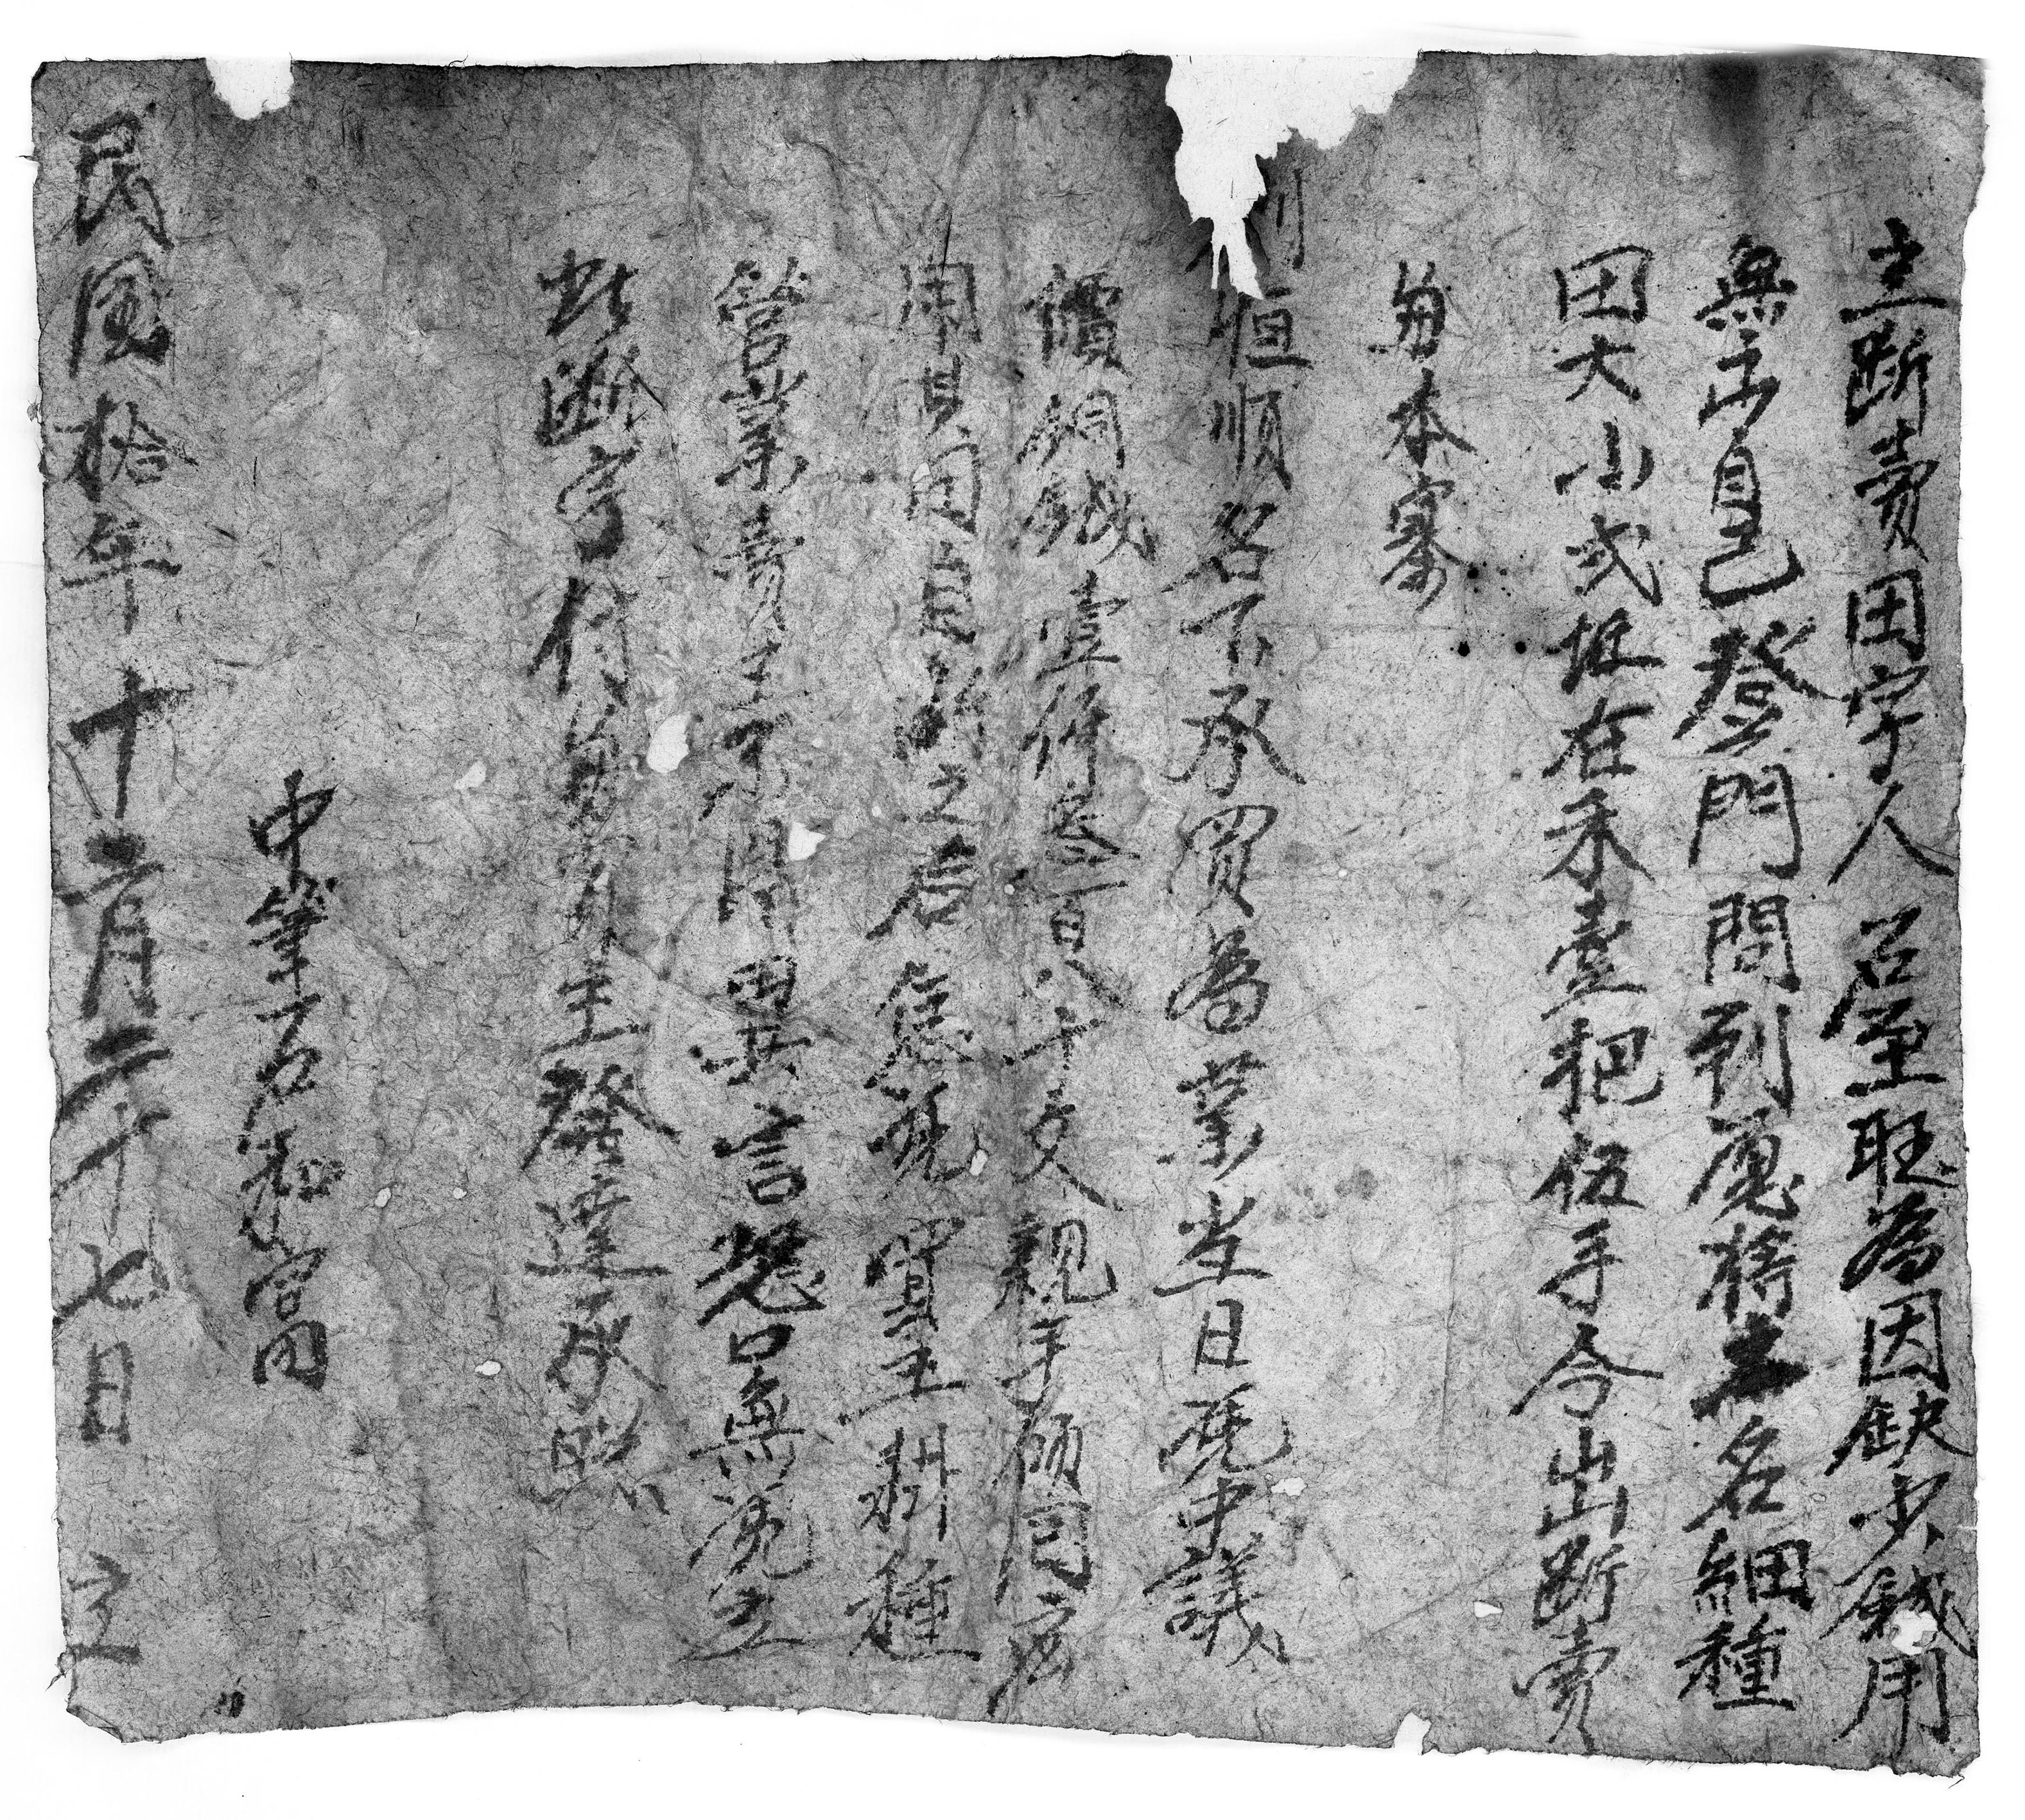 立断賣田字人石至旺為因缺少錢用
無出自己登門問到愿將土名細種
田大小弍坵在禾壹把伍手今出断賣
與本寨
恒順名下承買為業當日憑中議
價銅錢壹仟百八十文親手領囘應
用其田自断之后恁憑買主耕種
營業賣主不得異言恐口無憑立
此断字付與買主發達承照
中筆石和富
民國拾年十二月二十七日 立